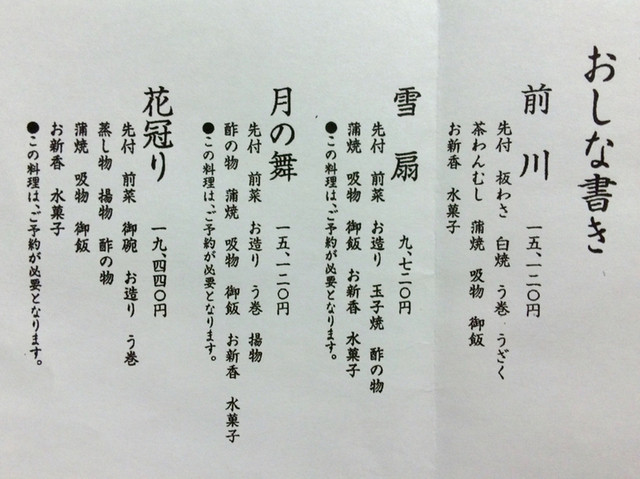 おしな書き
前川 一五、一二〇円
先付 板わさ 白焼 う巻 うざく
茶わんむし 蒲焼 吸物 御飯
お新香 水菓子
雪扇 九、七二〇円
先付 前菜 お造り 玉子焼 酢の物
蒲焼 吸物 御飯 お新香 水菓子
●この料理は、ご予約が必要となります。
月の舞 一五、一二〇円
先付 前菜 お造り う巻 揚物
酢の物 蒲焼 吸物 御飯 お新香 水菓子
●この料理は、ご予約が必要となります。
花冠り 一九、四四〇円
先付 前菜 御碗 お造り う巻
蒸し物 揚物 酢の物
蒲焼 吸物 御飯
お新香 水菓子
●この料理は、ご予約が必要となります。